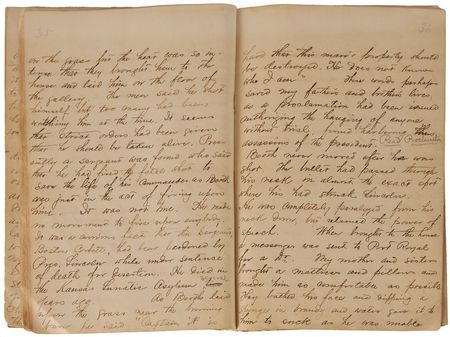 35
on the grass for the heat was so in-
tense that they brought him to the
house and laid him on the floor of
the gallery. The men said he shot
himself but too many had been
watching him at the time. It seems
that strict orders had been given
that he should be taken alive. Pres-
ently a sergeant was found who said
that he had fired the fatal shot to
save the life of his Commander as Booth
was just in the act of firing upon
me. It was not me. He made
no movement to fire upon anybody.
It was a curious fact that the sergeant,
Boston Corbett, had been pardoned by
Pres. Lincoln while under sentence
of death for desertion. He died in
the Kansas Lunatic Asylum several
years ago. As Booth laid
upon the grass near the burning
barn he said "Captain it is
36
hard that this man's property should
be destroyed. He does not know
who I am." These words perhaps
saved my father's and brother's lives
as a proclamation had been issued
authorizing the hanging of anyone
without trial found harboring the
assassins of the president. Read Proclamation
Booth never moved after he was
shot. The bullet had passed through
his neck in almost the exact spot
where he had struck Lincoln.
He was completely paralyzed from his
neck down, but retained the power of
speech. When brought to the house
a messenger was sent to Port Royal
for a Dr. My mother and sisters
brought a mattress and pillows and
made him as comfortable as possible
They bathed his face and dipping a
in brandy and water gave it to
him to suck as he was unable